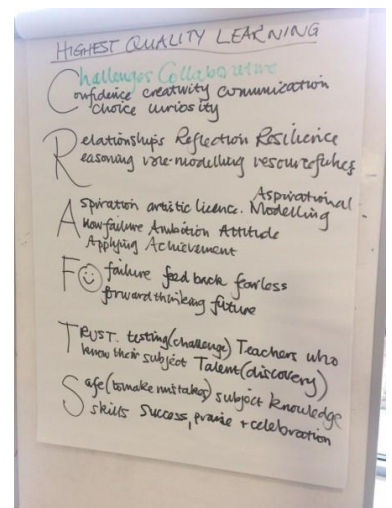 HIGHEST QUALITY LEARNING
Challenges Collaborative
Confidence creativity communication
choice curiosity
Relationships Reflection Resilience
Reasoning role-modelling resourcefulness
Aspirational
Aspiration artistic licence. Modelling
Allow failure Ambition Attitude
Applying Achievement
F☺ failure feed back fearless
forward thinking future
TRUST. testing (challenge) Teachers who
know their subject Talent (discovery)
Safe (to make mistakes) subject knowledge
skills Success, praise + celebration